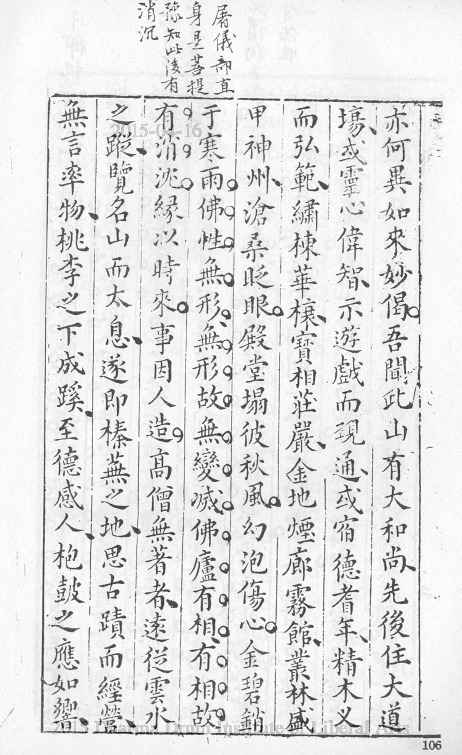 屠儀部直
身是菩提
豫知此後有
消沉
亦何異如來妙偈吾聞此山有大和尚先後住大道
場或靈心偉智示遊戲而現通或宿德耆年精木义
而弘範繡棟華榱寶相莊嚴金地煙廊霧館叢林盛
甲神州滄桑眨眼殿堂塌彼秋風幻泡傷心金碧銷
于寒雨佛性無形無形故無變滅佛廬有相有相故
有消沉緣以時來事因人造高僧無著者遠從雲水
之蹤覽名山而太息遂即榛蕪之地思古蹟而經營
無言率物桃李之下成蹊至德感人枹鼓之應如響
2015-04-16
106